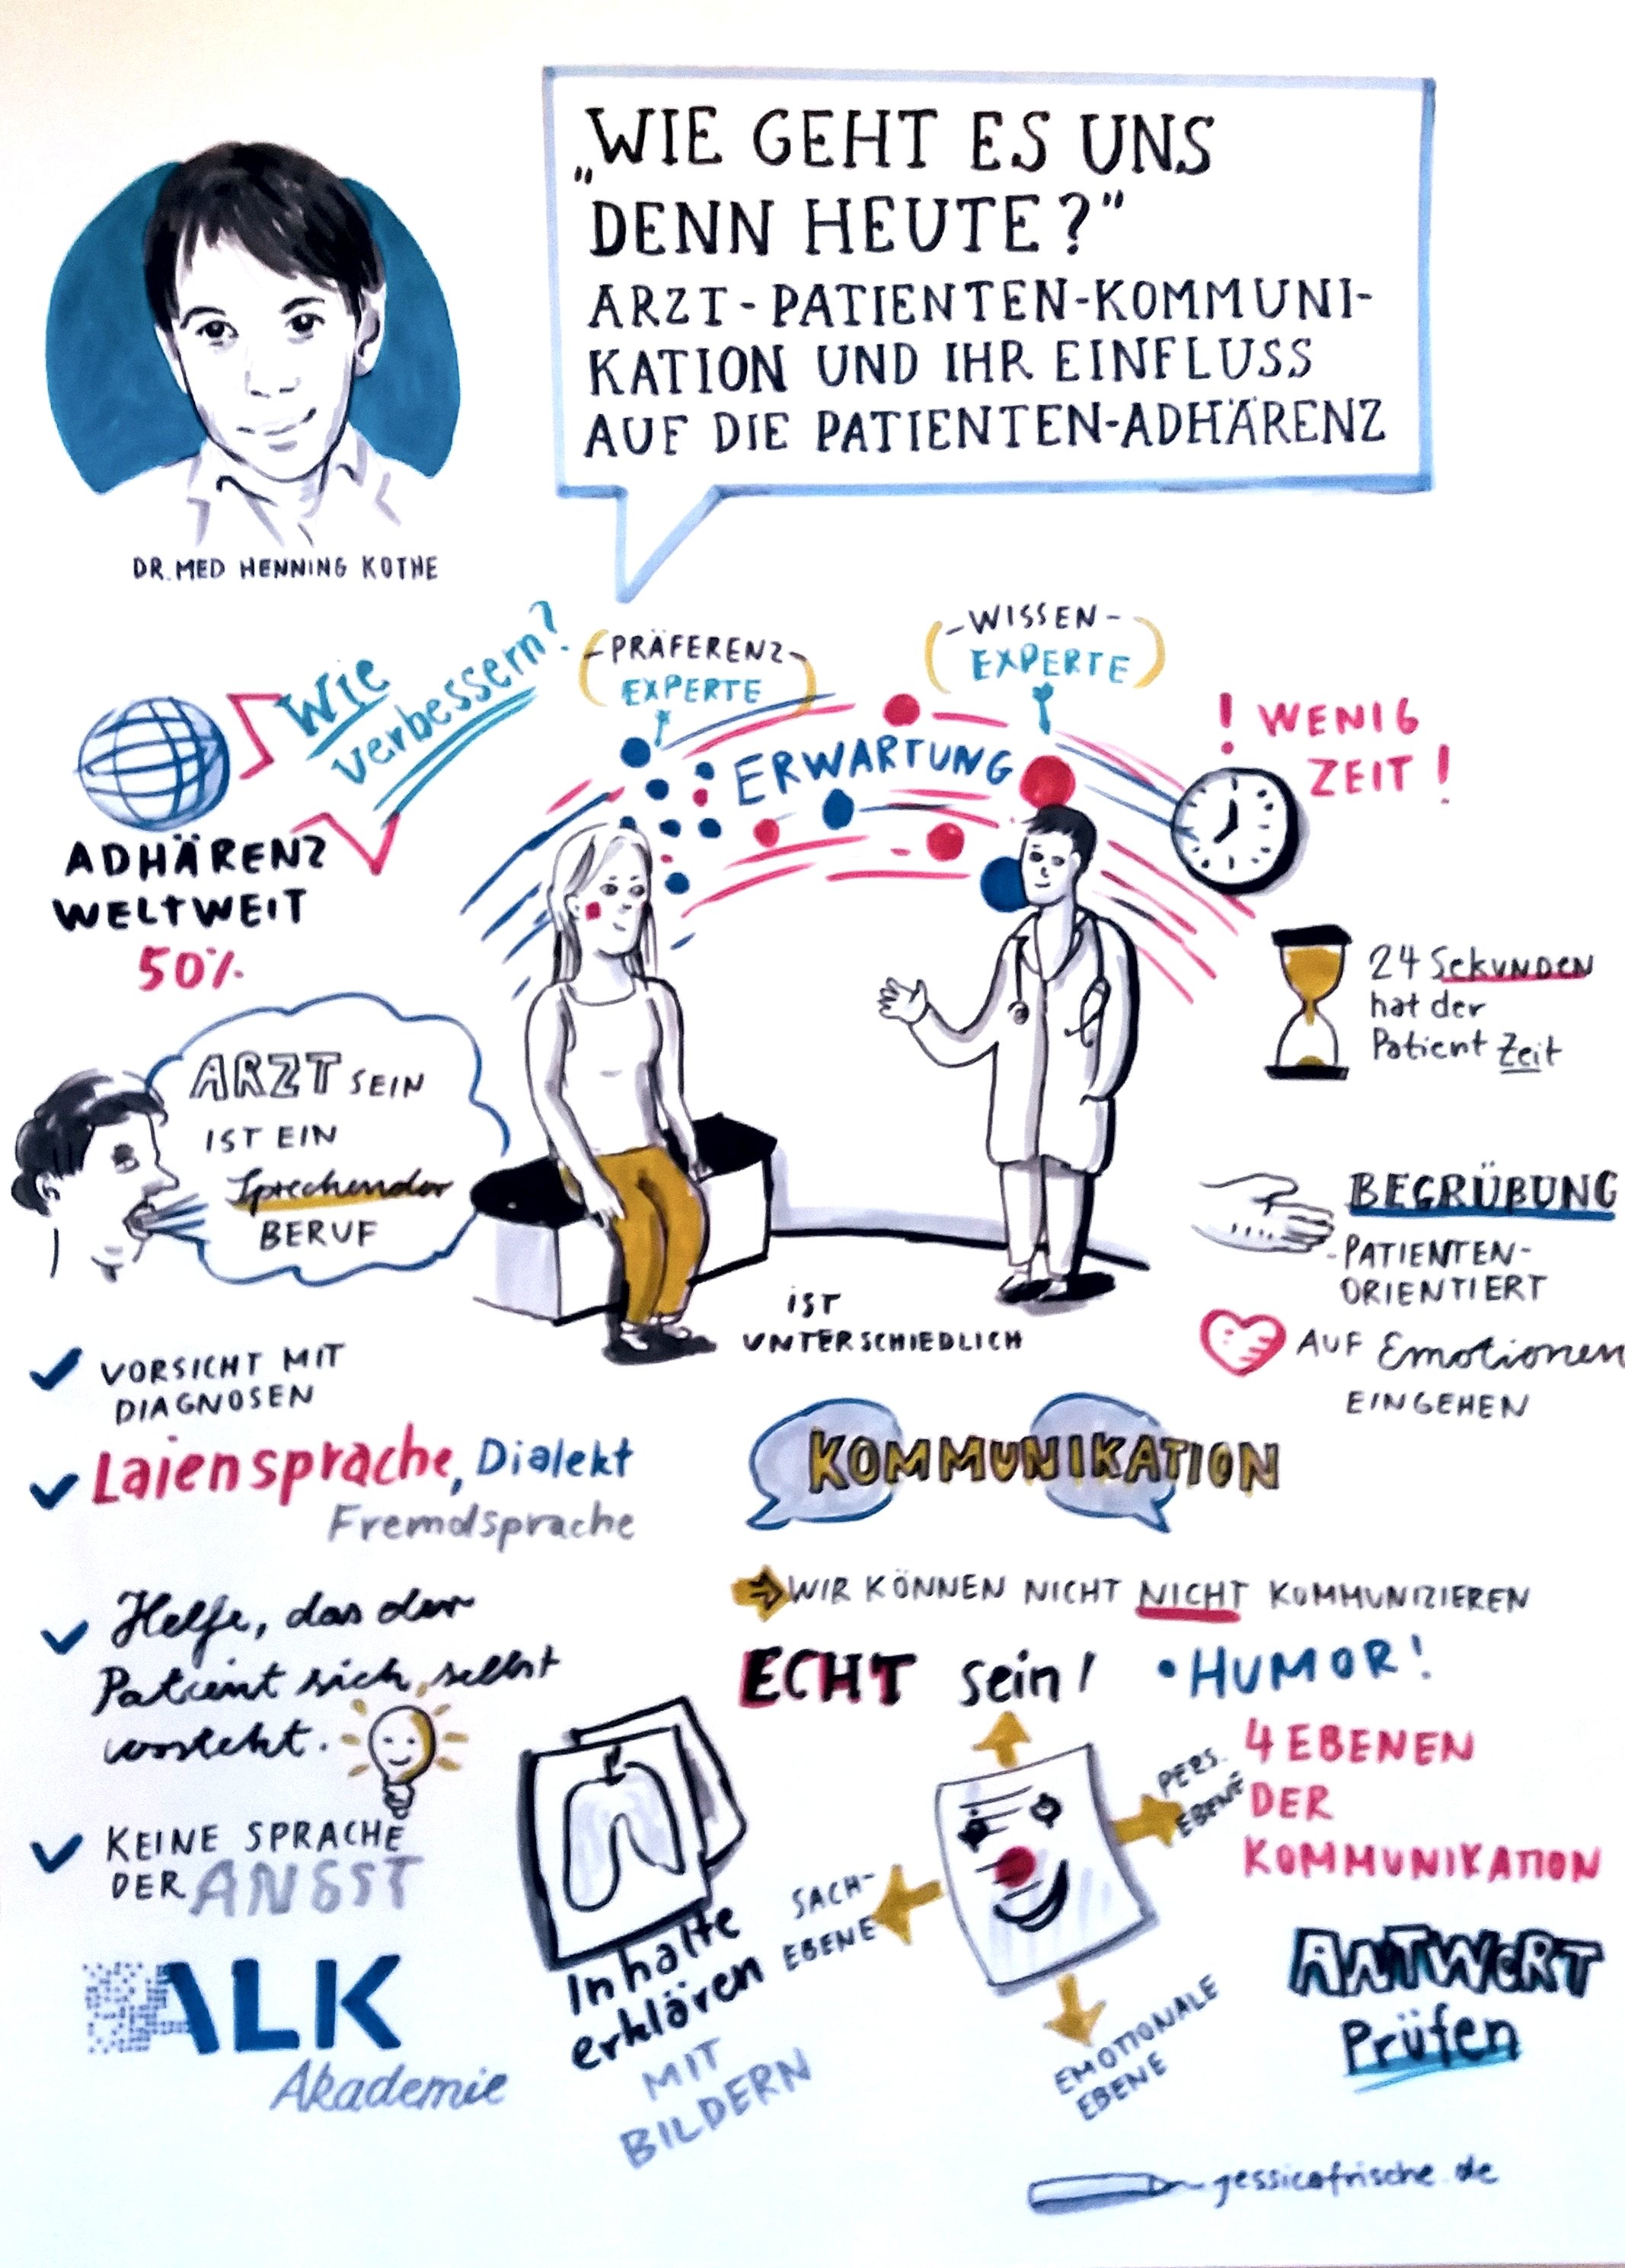 „WIE GEHT ES UNS
DENN HEUTE?"
ARZT-PATIENTEN-KOMMUNI-
KATION UND IHR EINFLUSS
AUF DIE PATIENTEN-ADHÄRENZ
DR. MED HENNING KOTHE
Wie
verbessern?
ADHÄRENZ
WELTWEIT
50%
PRÄFERENZ-
EXPERTE
-WISSEN-
EXPERTE
ERWARTUNG
! WENIG
ZEIT!
24 Sekunden
hat der
Patient Zeit
ARZT SEIN
IST EIN
Sprechender
BERUF
IST
UNTERSCHIEDLICH
BEGRÜßUNG
-PATIENTEN-
ORIENTIERT
AUF Emotionen
EINGEHEN
VORSICHT MIT
DIAGNOSEN
Laiensprache, Dialekt
Fremdsprache
Helfe, das der
Patient sich selbst
versteht.
KEINE SPRACHE
DER ANGST
KOMMUNIKATION
WIR KÖNNEN NICHT NICHT KOMMUNIZIEREN
ECHT sein! • HUMOR!
4 EBENEN
DER
KOMMUNIKATION
PERS.
EBENE
SACH-
EBENE
EMOTIONALE
EBENE
Inhalte
erklären
MIT
BILDERN
ANTWORT
Prüfen
ALK
Akademie
jessicafrische.de